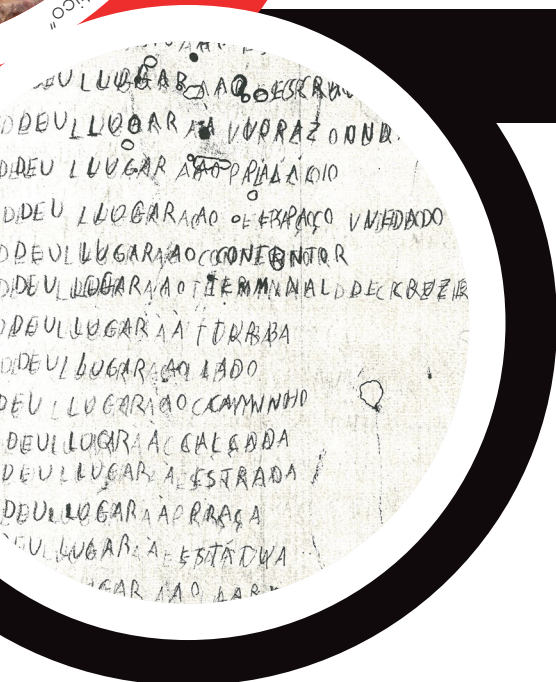 ico"
DEU LUGAR AO
DEU LUGAR A
DEU LUGAR AO PALÁCIO
DEU LUGAR AO ESPAÇO VEDADO
DEU LUGAR AO CONTENTOR
DEU LUGAR AO TERMINAL DE CRUZEIR
DEU LUGAR À TURBA
DEU LUGAR AO LADO
DEU LUGAR AO CAMINHO
DEU LUGAR À CALÇADA
DEU LUGAR À ESTRADA
DEU LUGAR À PRAÇA
DEU LUGAR À ESTÁTUA
LUGAR AO